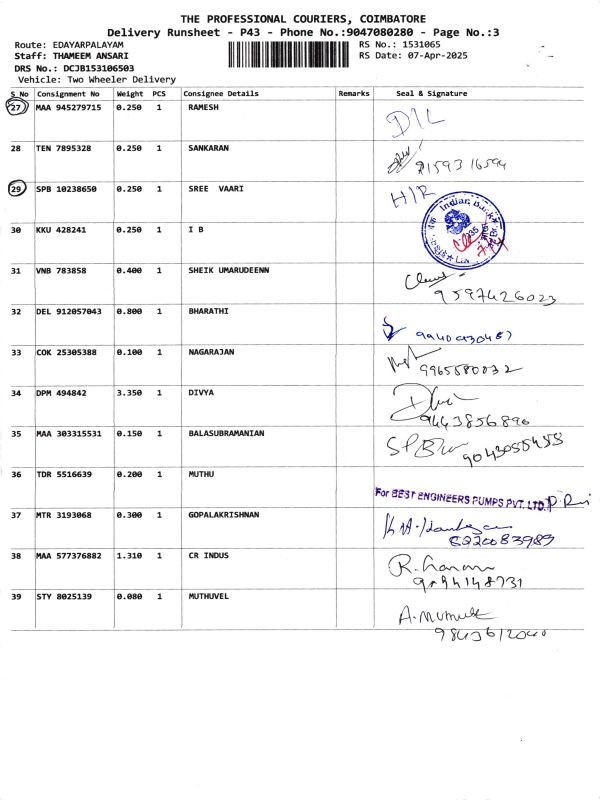 THE PROFESSIONAL COURIERS, COIMBATORE
Delivery Runsheet - P43 - Phone No.:9047080280 - Page No.:3
Route: EDAYARPALAYAM RS No.: 1531065
Staff: THAMEEM ANSARI RS Date: 07-Apr-2025
DRS No.: DCJB153106503
Vehicle: Two Wheeler Delivery
S_No Consignment No Weight PCS Consignee Details Remarks Seal & Signature
27 MAA 945279715 0.250 1 RAMESH
D/L
28 TEN 7895328 0.250 1 SANKARAN
29 SPB 10238650 0.250 1 SREE VAARI
H/R
Indian Bank
30 KKU 428241 0.250 1 I B
31 VNB 783858 0.400 1 SHEIK UMARUDEENN
9597426023
32 DEL 912057043 0.800 1 BHARATHI
33 COK 25305388 0.100 1 NAGARAJAN
9965580032
34 DPM 494842 3.350 1 DIVYA
9443856896
35 MAA 303315531 0.150 1 BALASUBRAMANIAN
36 TDR 5516639 0.200 1 MUTHU
For BEST ENGINEERS PUMPS PVT. LTD.
37 MTR 3193068 0.300 1 GOPALAKRISHNAN
8220083989
38 MAA 577376882 1.310 1 CR INDUS
39 STY 8025139 0.080 1 MUTHUVEL